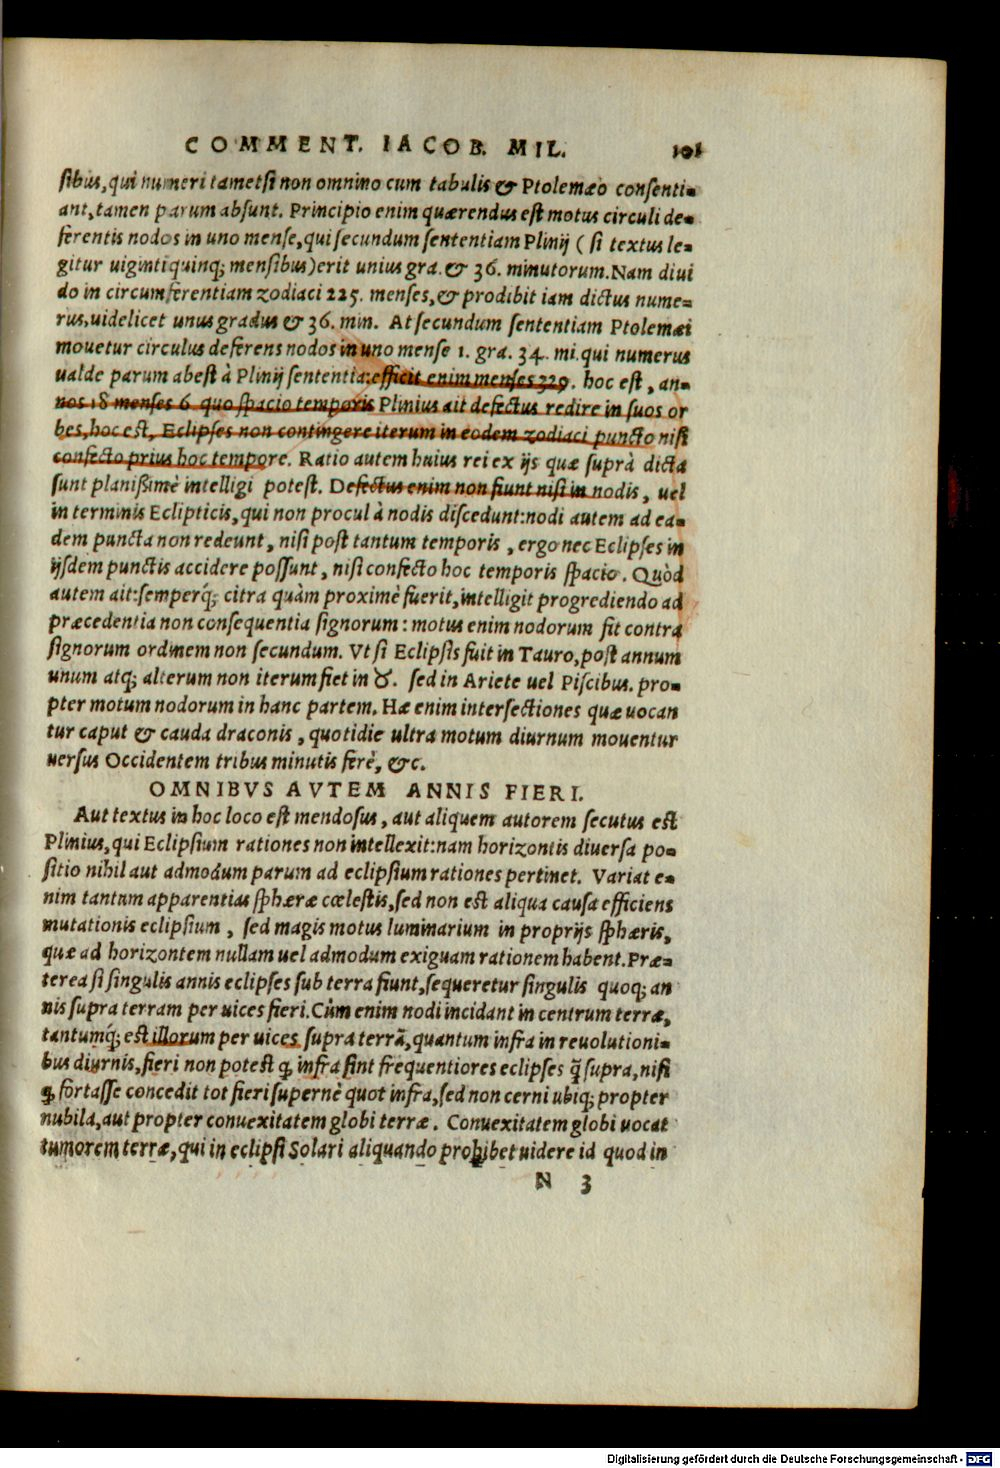 COMMENT. IACOB. MIL. 101
sibus, qui numeri tametsi non omnino cum tabulis & Ptolemæo consenti-
ant, tamen parum absunt. Principio enim quærendus est motus circuli de-
ferentis nodos in uno mense, qui secundum sententiam Plinij (si textus le-
gitur uigintiquinq; mensibus) erit unius gra. & 36. minutorum. Nam diui
do in circumferentiam zodiaci 225. menses, & prodibit iam dictus nume-
rus, uidelicet unus gradus & 36. min. At secundum sententiam Ptolemæi
mouetur circulus deferens nodos in uno mense 1. gra. 34. mi. qui numerus
ualde parum abest à Plinij sententia: efficit enim menses 229. hoc est, an-
nos 18 menses 6 quo spacio temporis Plinius ait defectus redire in suos or
bes, hoc est, Eclipses non contingere iterum in eodem zodiaci puncto nisi
confecto prius hoc tempore. Ratio autem huius rei ex ijs quæ suprà dicta
sunt planißimè intelligi potest. Defectus enim non fiunt nisi in nodis, uel
in terminis Eclipticis, qui non procul à nodis discedunt: nodi autem ad ea-
dem puncta non redeunt, nisi post tantum temporis, ergo nec Eclipses in
ijsdem punctis accidere possunt, nisi confecto hoc temporis spacio. Quòd
autem ait: semperq́; citra quàm proximè fuerit, intelligit progrediendo ad
præcedentia non consequentia signorum: motus enim nodorum fit contra
signorum ordinem non secundum. Vt si Eclipsis fuit in Tauro, post annum
unum atq; alterum non iterum fiet in ♉. sed in Ariete uel Piscibus. pro-
pter motum nodorum in hanc partem. Hæ enim intersectiones quæ uocan
tur caput & cauda draconis, quotidie ultra motum diurnum mouentur
uersus Occidentem tribus minutis ferè, &c.
OMNIBVS AVTEM ANNIS FIERI.
Aut textus in hoc loco est mendosus, aut aliquem autorem secutus est
Plinius, qui Eclipsium rationes non intellexit: nam horizontis diuersa po-
sitio nihil aut admodum parum ad eclipsium rationes pertinet. Variat e-
nim tantum apparentias sphæræ cœlestis, sed non est aliqua causa efficiens
mutationis eclipsium, sed magis motus luminarium in proprijs sphæris,
quæ ad horizontem nullam uel admodum exiguam rationem habent. Præ-
terea si singulis annis eclipses sub terra fiunt, sequeretur singulis quoq; an
nis supra terram per uices fieri. Cùm enim nodi incidant in centrum terræ,
tantumq́; est illorum per uices supra terrã, quantum infra in reuolutioni-
bus diurnis, fieri non potest ꝙ infra sint frequentiores eclipses q̃ supra, nisi
ꝙ fortasse concedit tot fieri supernè quot infra, sed non cerni ubiq; propter
nubila, aut propter conuexitatem globi terræ. Conuexitatem globi uocat
tumorem terræ, qui in eclipsi Solari aliquando prohibet uidere id quod in
N 3
Digitalisierung gefördert durch die Deutsche Forschungsgemeinschaft - DFG